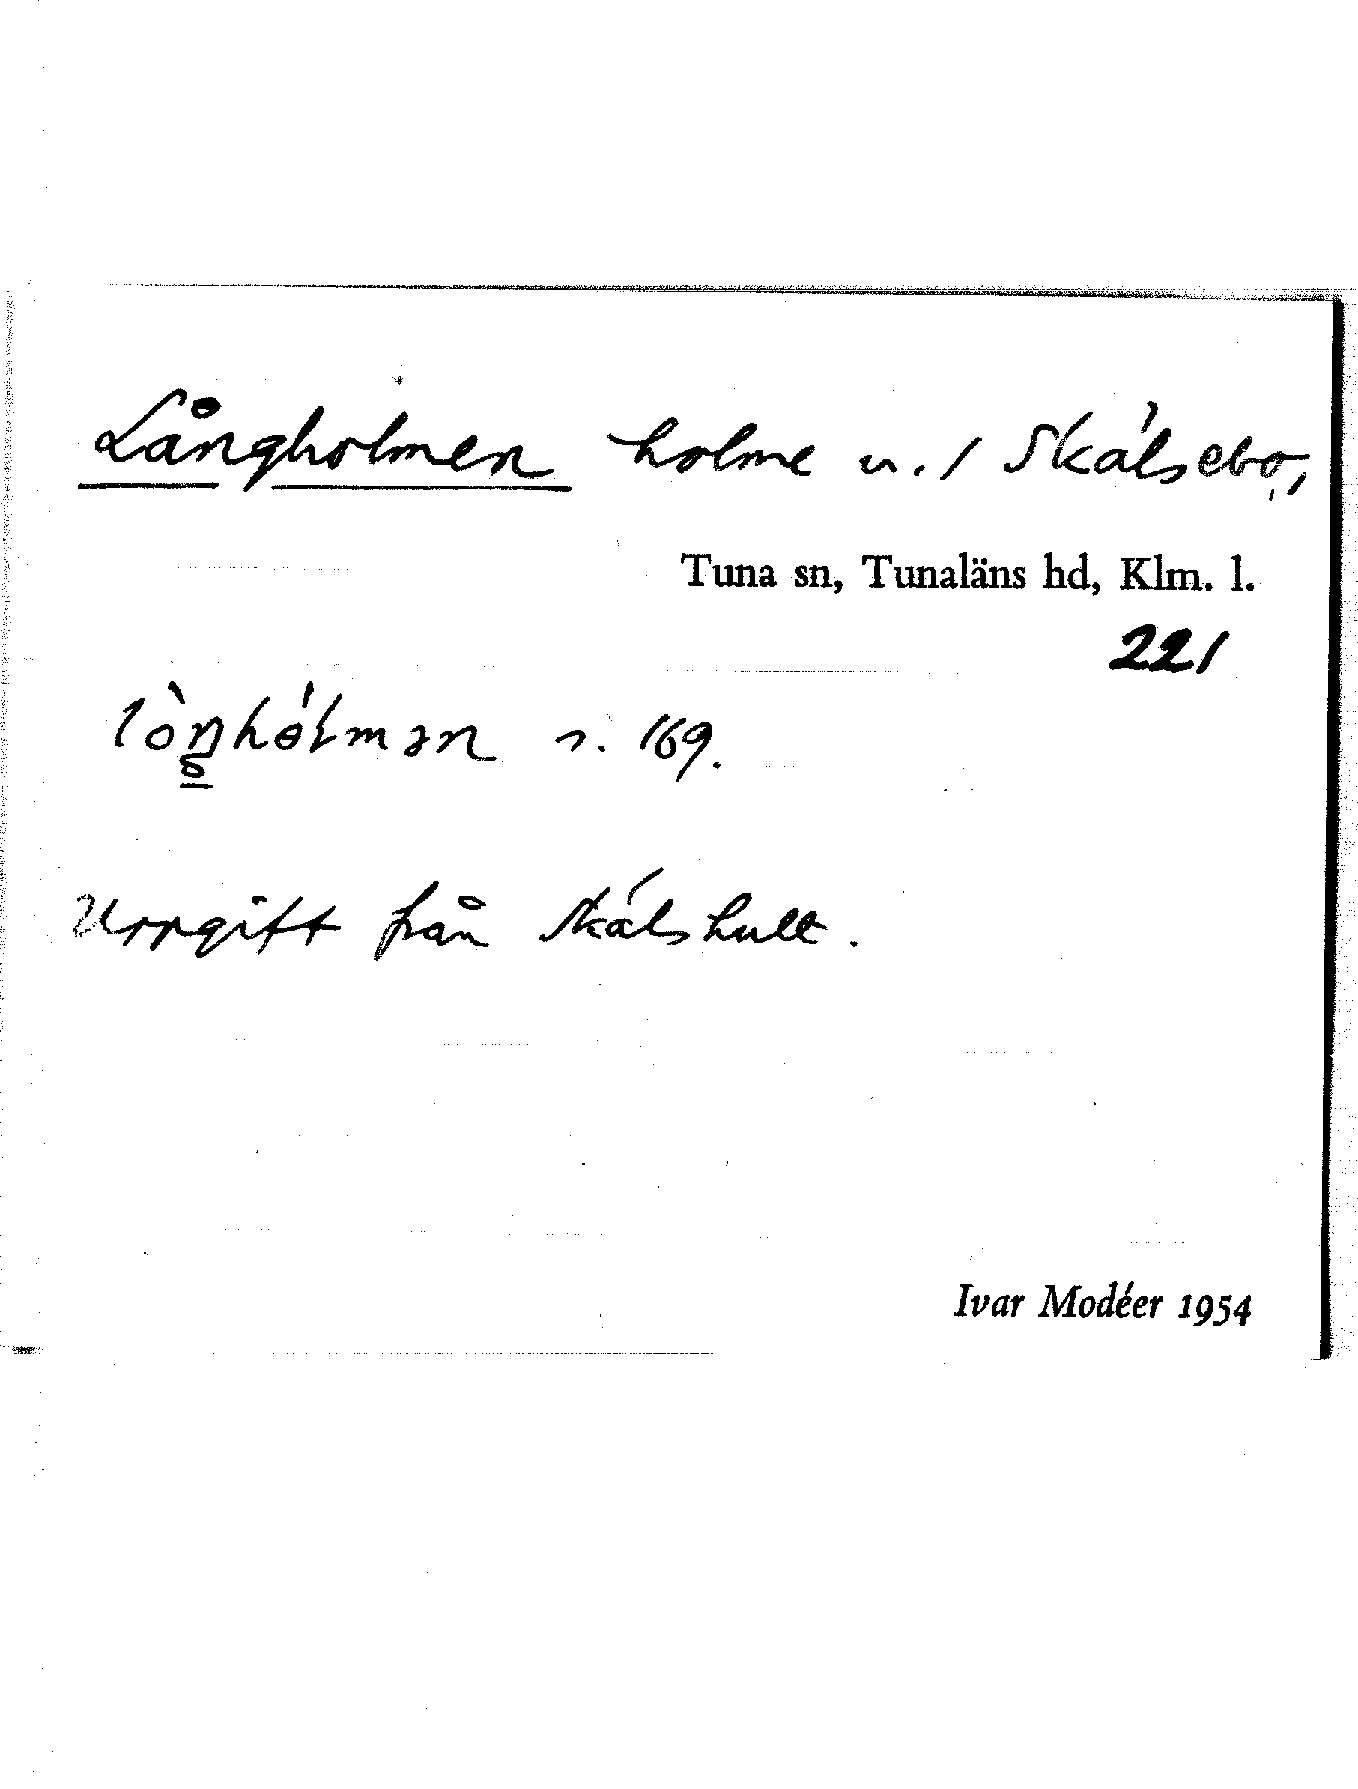 Långholmen holme u. / Skálsebo,
Tuna sn, Tunaläns hd, Klm. l.
221
s. 169.
Uppgift från Skálshult.
Ivar Modéer 1954